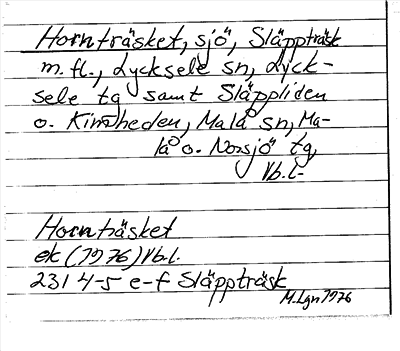 Hornträsket, sjö, Släppträsk
m. fl., Lycksele sn, Lyck-
sele tg samt Släppliden
o. Kimheden, Malå sn, Ma-
lå o. Norsjö tg,
Vb.l.
Hornträsket
ek (1976) Vb.l.
231 4-5 e-f Släppträsk
M. Lgn 1976